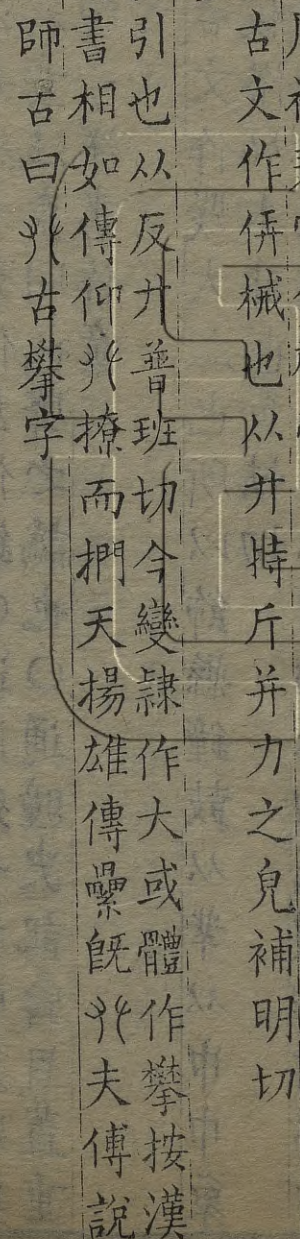 古文作㒇械也从廾持斤并力之皃補明切
引也从反廾普班切今變隷作大或體作攀按漢
書相如傳仰𠬜撩而捫天揚雄傳纍旣𠬜夫傅說
師古曰𠬜古攀字